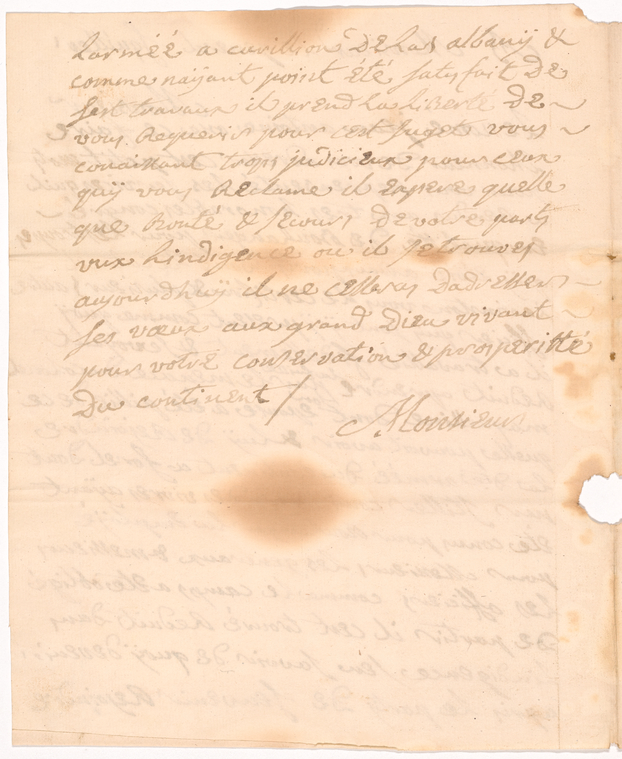 Larmée a cavillion De Las albanÿ &
comme naÿant point été satisfait De
sest travaux il prend La Liberté De ~
vous Requerir pour cest Suget vous ~
conaissant trops judicieux pour ceux
quÿ vous Reclame il Espere quelle
que Bonté & secours De votre parts
vux Lindigence ou il se trouves
aujourdhuÿ il ne cesseras Dadresser ~
ses vœux aux grand Dieu vivant ~
pour votre conservation & prosperitté
Du continent /
Monsieur